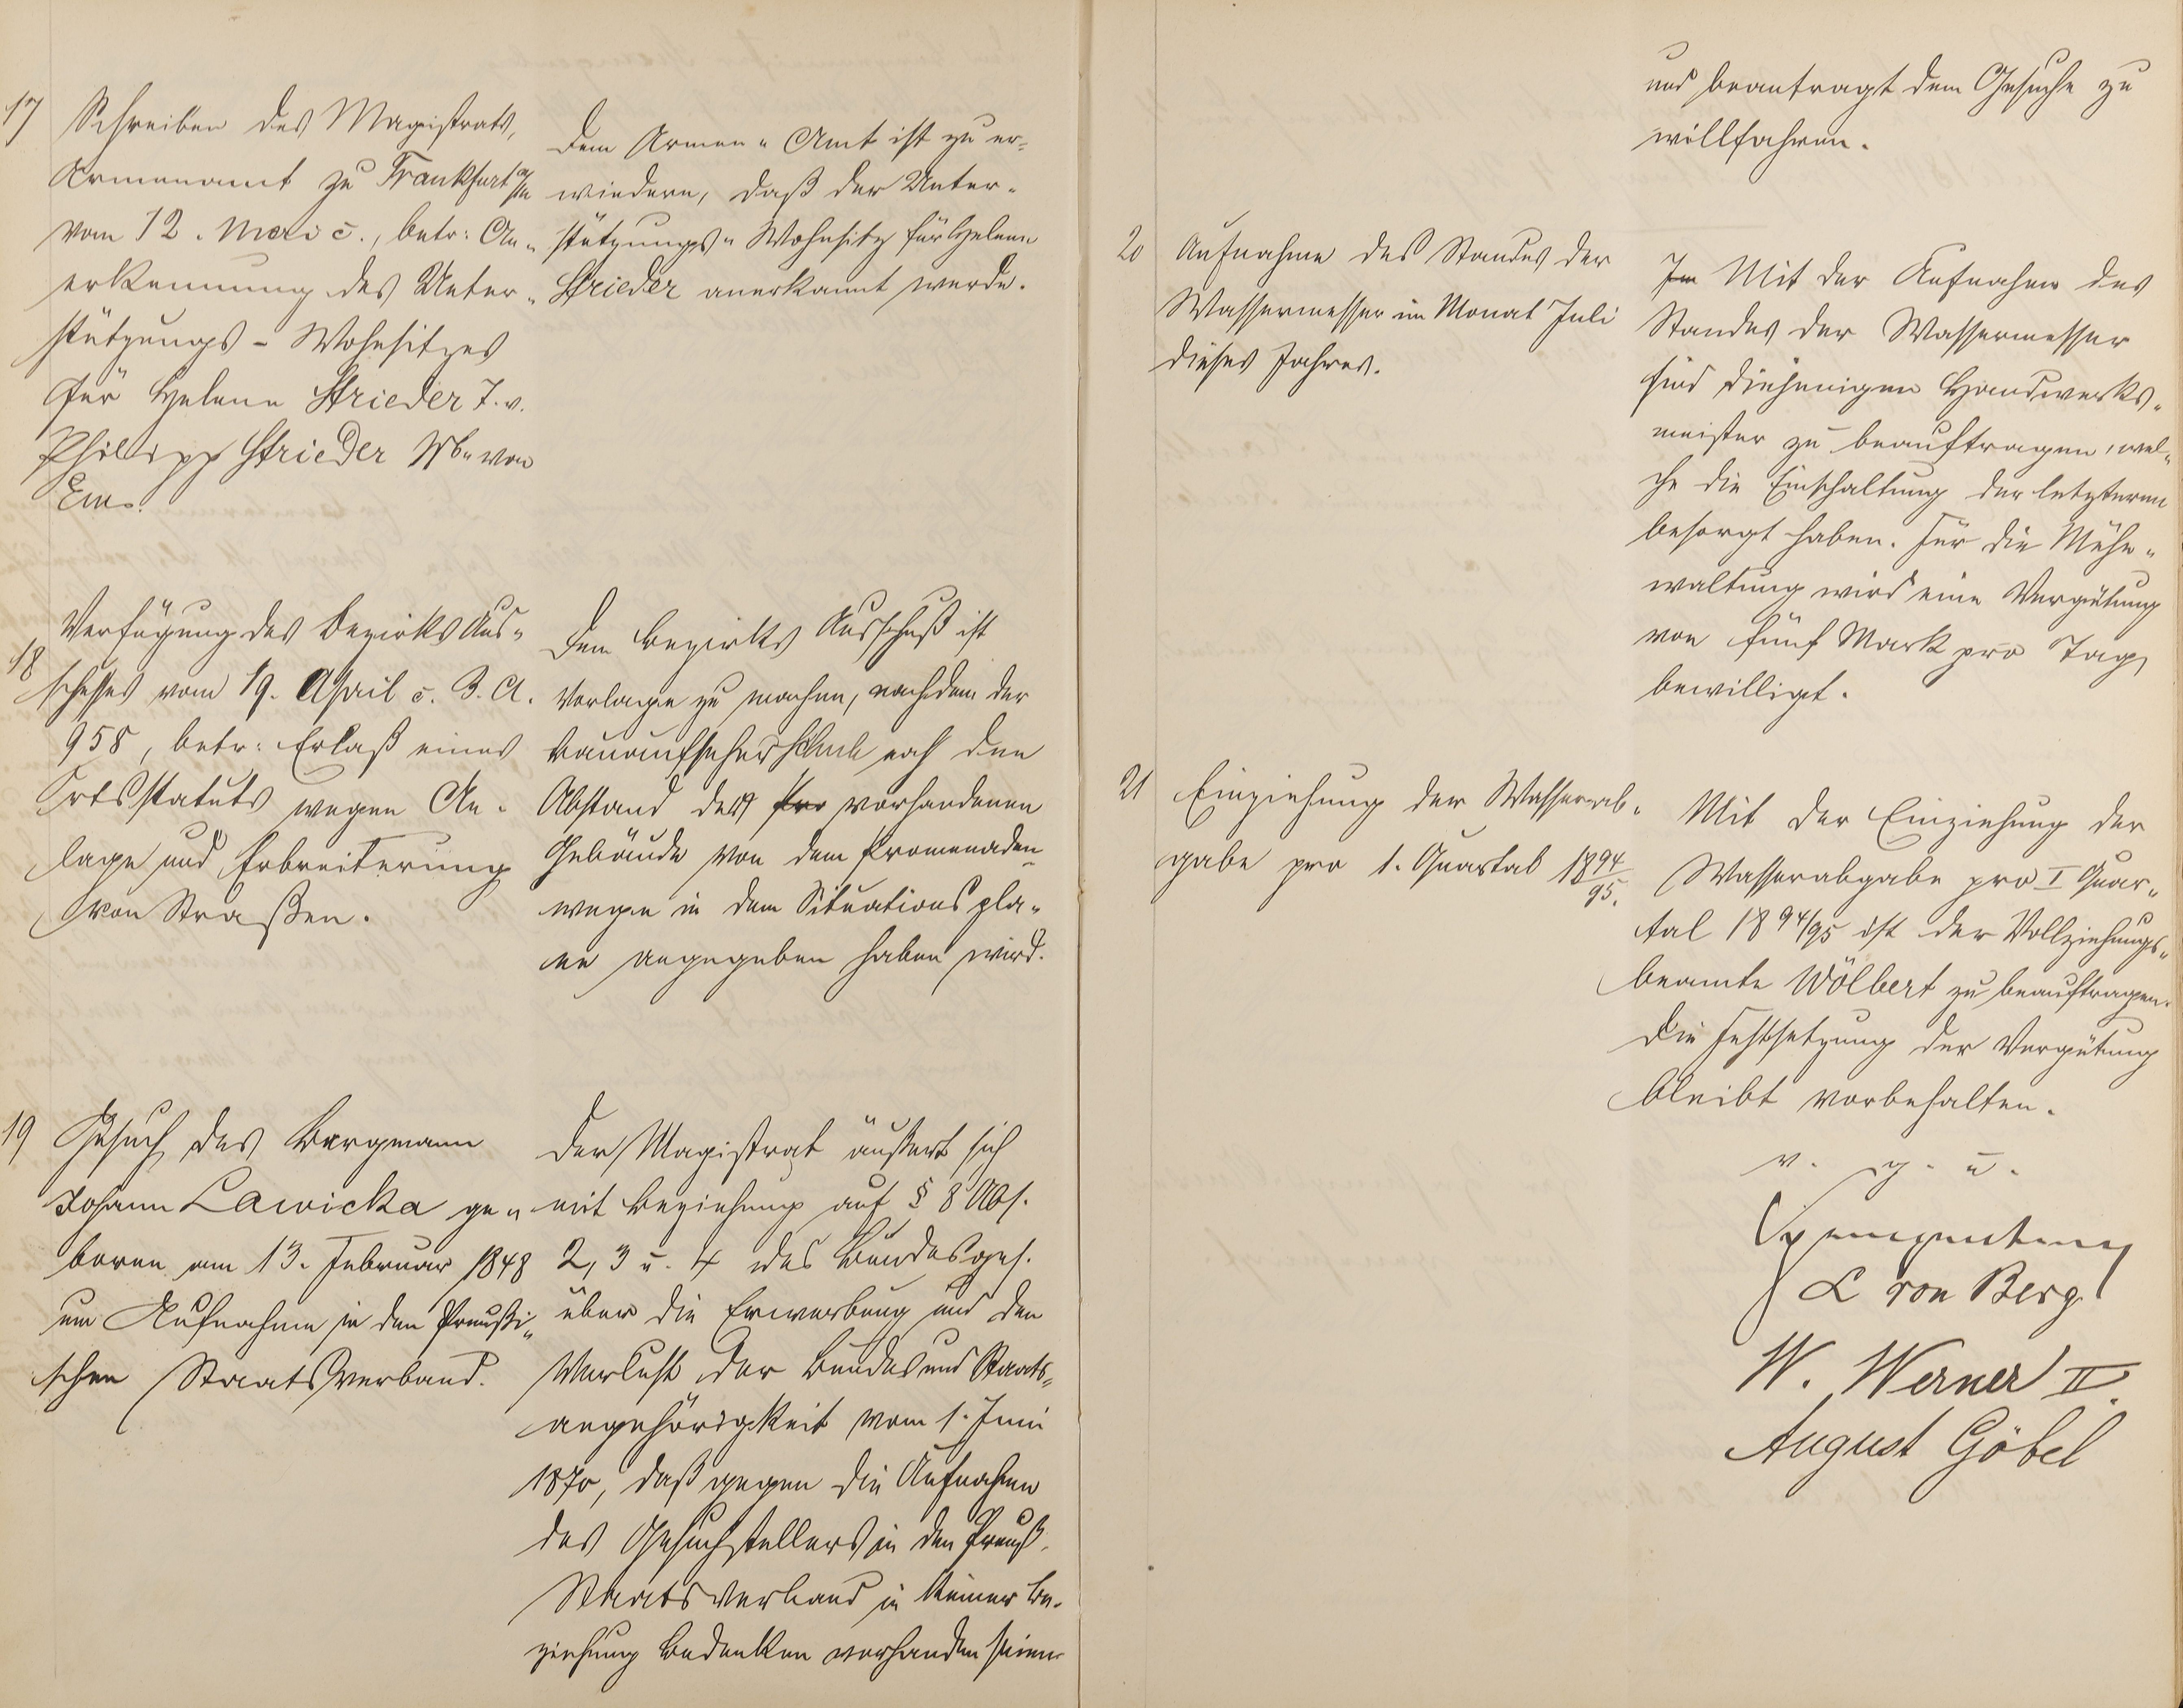 17
Schreiben des Magistrats,
Armenamt zu Frankfurt a/m
vom 12. Mai c., betr: An-
erkennung des Unter-
stützungs-Wohnsitzes
für Helene Strieder T. v.
Philipp Strieder Wb. von
Ems.
Dem Armen-Amt ist zu er-
wiedern, daß der Unter-
stützungs-Wohnsitz für Helene
Strieder anerkannt werde.
18
Verfügung des Bezirks Aus-
schusses vom 19. April c. B. A.
958, betr: Erlaß eines
Ortsstatuts wegen An-
lage und Erbreiterung
von Straßen.
Dem Bezirks Ausschuß ist
Vorlage zu machen, nachdem der
Bauaufseher noch den
Abstand der vorhandenen
Gebäude von dem Promenaden-
wege in dem Situationspla-
ne angegeben haben wird.
19
Gesuch des Bergmann
Johann Lawicka ge-
boren am 13. Februar 1848
um Aufnahme in den Preußi-
schen Staatsverband.
Der Magistrat äußert sich
mit Beziehung auf § 8 Abs.
2, 3 u. 4 des Bundesges.
über die Erwerbung und den
Verlust der Bundes und Staats-
angehörigkeit vom 1. Juni
1870, daß gegen die Aufnahme
des Gesuchstellers in den Preuß.
Staatsverband in keiner Be-
ziehung Bedenken vorhanden seien
und beantragt dem Gesuche zu
willfahren.
20
Aufnahme des Standes der
Wassermesser im Monat Juli
dieses Jahres.
Im Mit der Aufnahme des
Standes der Wassermesser
sind diejenigen Handwerks-
meister zu beauftragen, wel-
che die Einschaltung der letzteren
besorgt haben. Für die Mühe-
waltung wird eine Vergütung
von fünf Mark pro Tag
bewilligt.
21
Einziehung der Wasserab-
gabe pro 1. Quartal 1894/95.
Mit der Einziehung der
Wasserabgabe pro I Quar-
tal 1894/95 ist der Vollziehungs-
beamte Wölbert zu beauftragen.
Die Festsetzung der Vergütung
bleibt vorbehalten.
v. g. u.
L von Berg
W. Werner II.
August Göbel